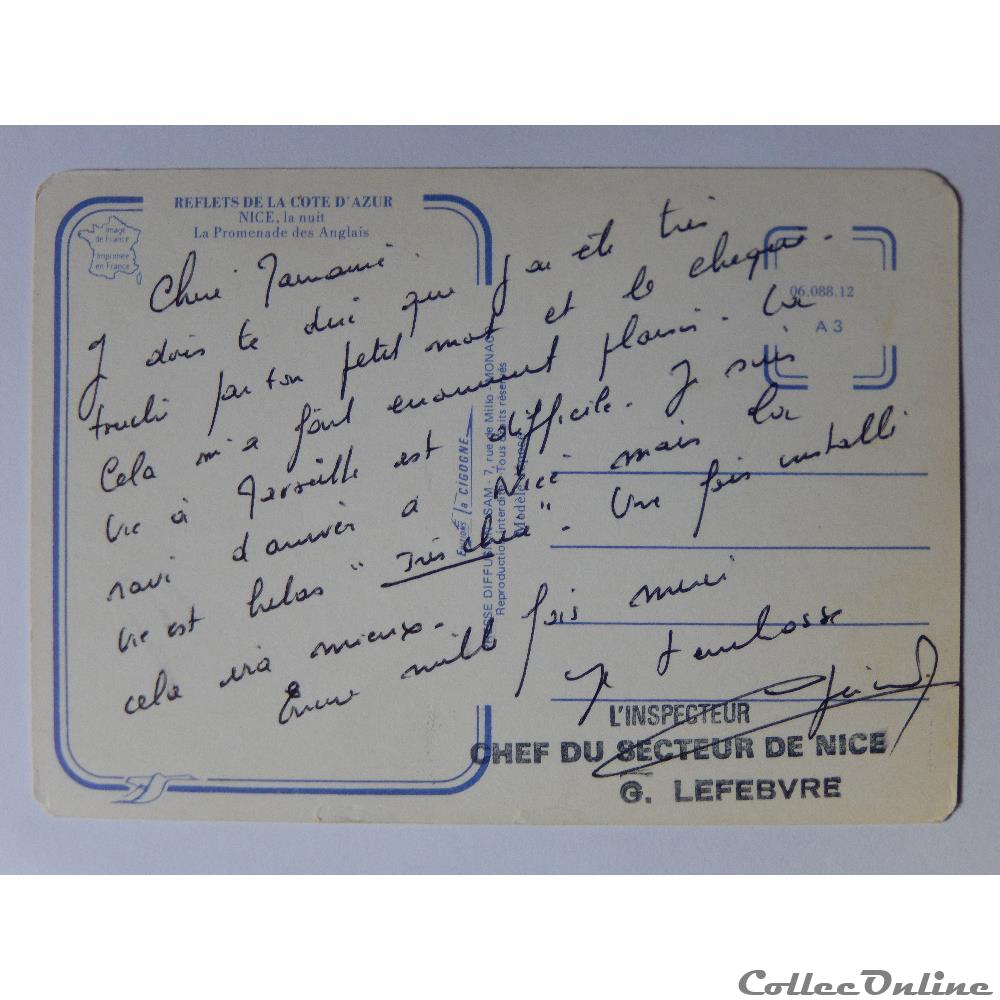 REFLETS DE LA COTE D'AZUR
NICE, la nuit
La Promenade des Anglais
Image
de France
Imprimée
en France
06.088.12
A 3
J dois te dire que j'ai été très
touché par ton petit mot et le chèque.
Cela m'a fait enormement plaisir. La
vie à Marseille est difficile. J suis
ravi d'arriver à Nice mais la
vie est helas "très chère". Une fois installé
cela ira mieux.
Encore mille fois merci
Je t'embrasse
Editions la CIGOGNE
DIFFUSION SAM - 7, rue de Millo - MONACO
Reproduction interdite - Tous droits réservés
Modèle déposé
L'INSPECTEUR
CHEF DU SECTEUR DE NICE
G. LEFEBVRE
CollecOnline